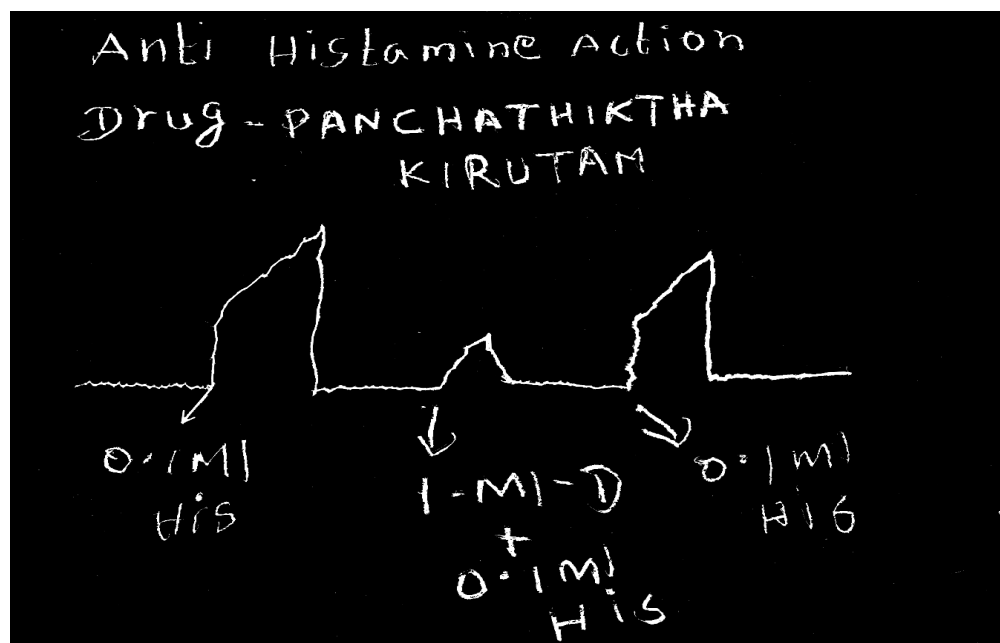 Anti Histamine Action
Drug - PANCHATHIKTHA
KIRUTAM
0.1Ml
His
1-Ml-D
+
0.1Ml
His
0.1ml
His